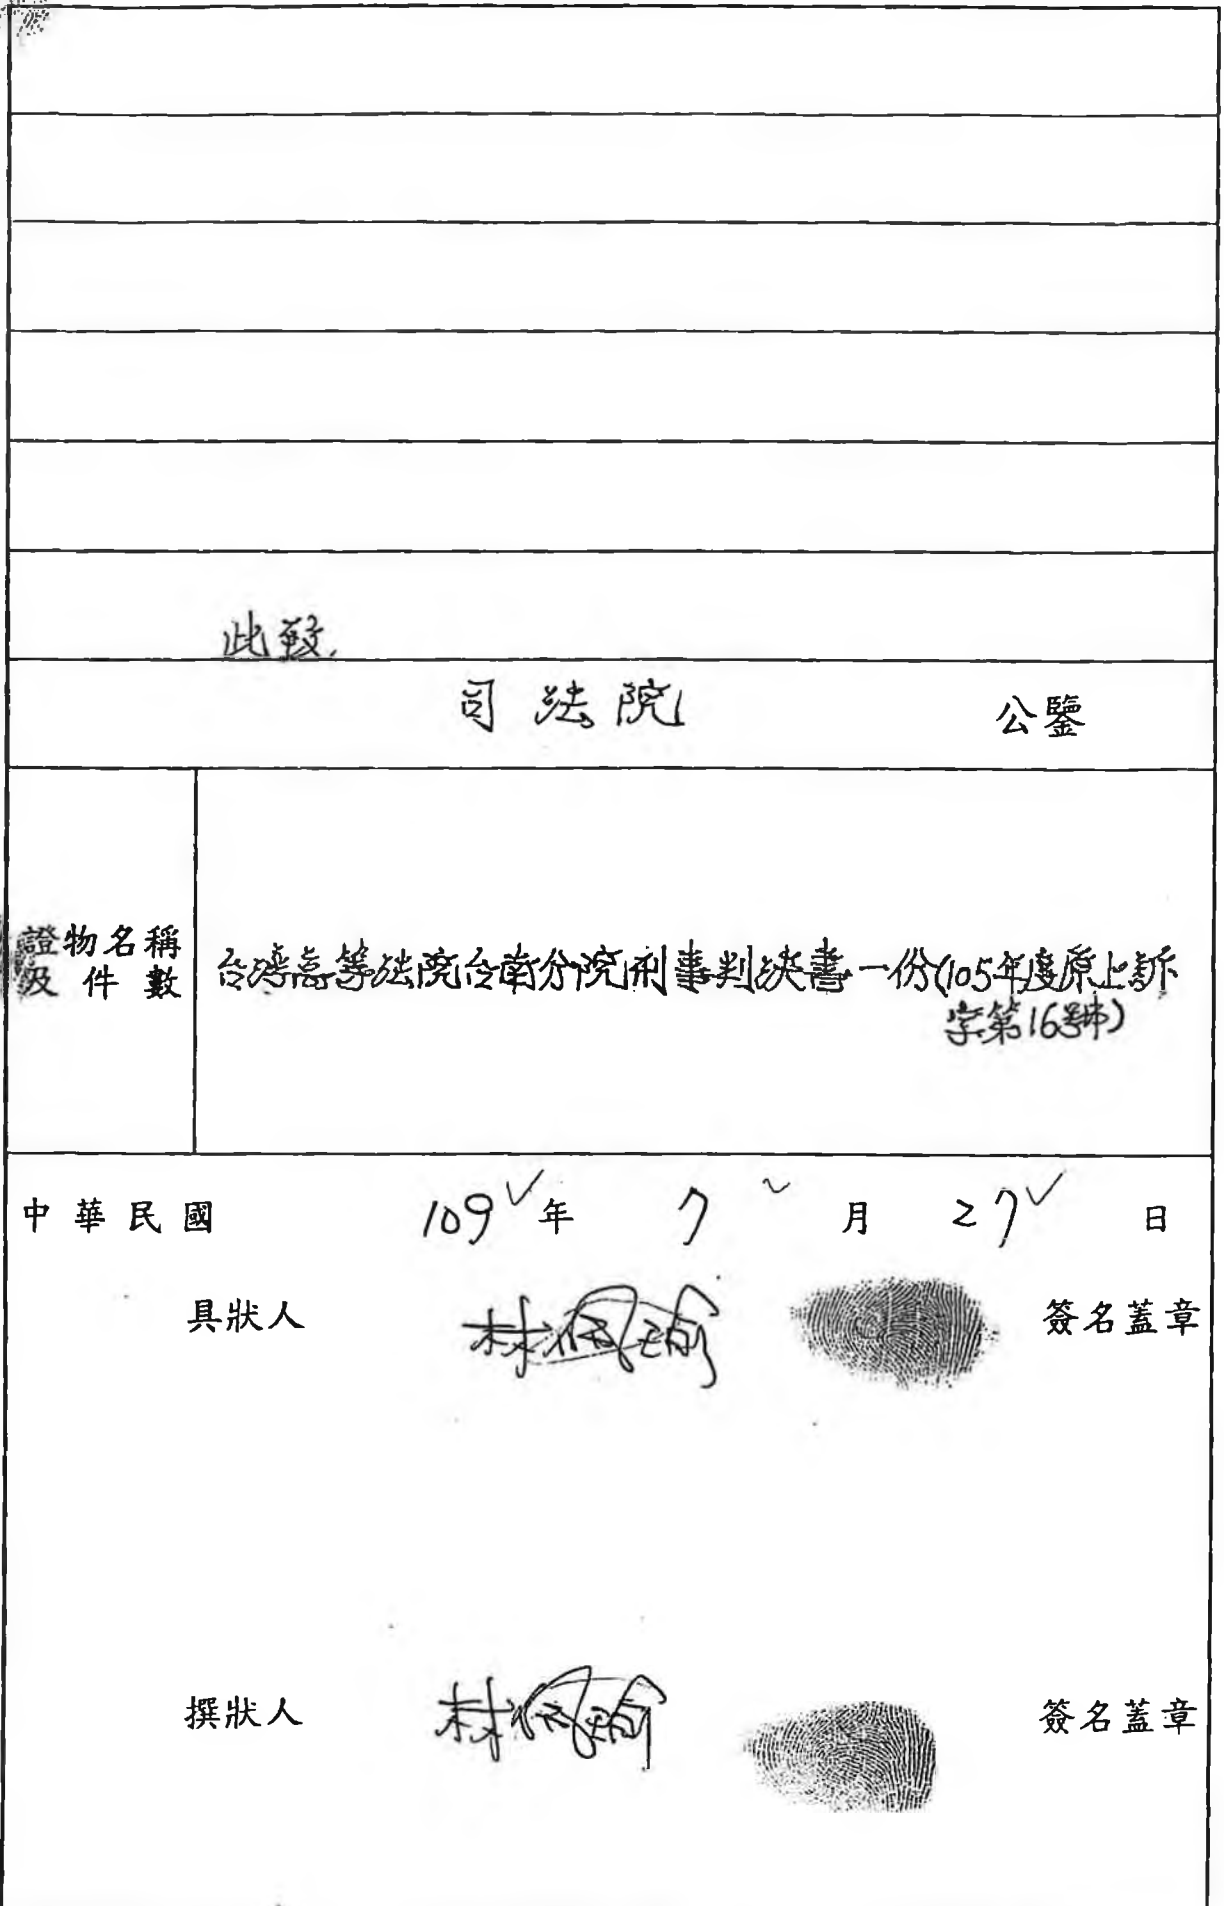 此致,
司法院 公鑒
證物名稱
及件數
台灣高等法院台南分院刑事判決書一份(105年度原上訴
字第16號)
中華民國 109年 7月 27日
具狀人 林佩瑜 簽名蓋章
撰狀人 林佩瑜 簽名蓋章